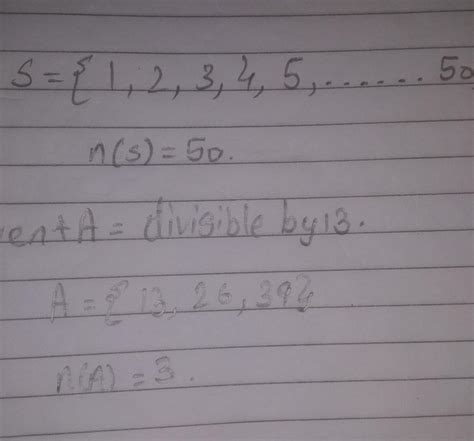 S = { 1, 2, 3, 4, 5, ...... 50
n(s) = 50.
ent A = divisible by 13.
A = { 13, 26, 39}
n(A) = 3.